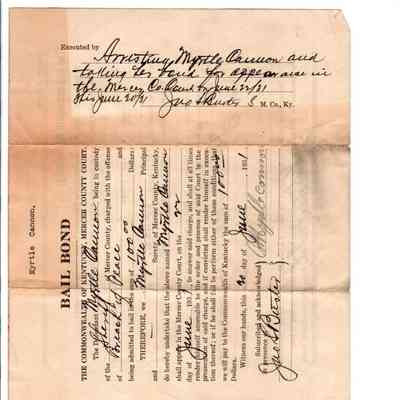 Executed by Arresting Myrtle Cannon and
taking her bond for appearance in
the Mercer Co. Court for June 22/31
This June 20/31
S. M. Co., Ky.
Myrtle Cannon,
BAIL BOND
THE COMMONWEALTH OF KENTUCKY, MERCER COUNTY COURT.
The Defendant Myrtle Cannon being in custody
of the Sheriff of Mercer County, charged with the offense
of Breach of Peace
of and
being admitted to bail in the sum of 100.00 Dollars:
THEREFORE, we Myrtle Cannon Principal
And Surety of Mercer County, Kentucky,
do hereby undertake that the above named Myrtle Cannon
shall appear in the Mercer County Court, on the 22
day of June 1931, to answer said charge, and shall at all times
render himself amenable to the order and process of said Court in the
prosecution of said charge, and if convicted shall render himself in execu-
tion thereof; or if he shall fail to perform either of these conditions, that
we will pay the Commonwealth of Kentucky the sum of 100.00
Dollars.
Witness our hands, this 20 day of June 1931
Subscribed and acknowledged
before